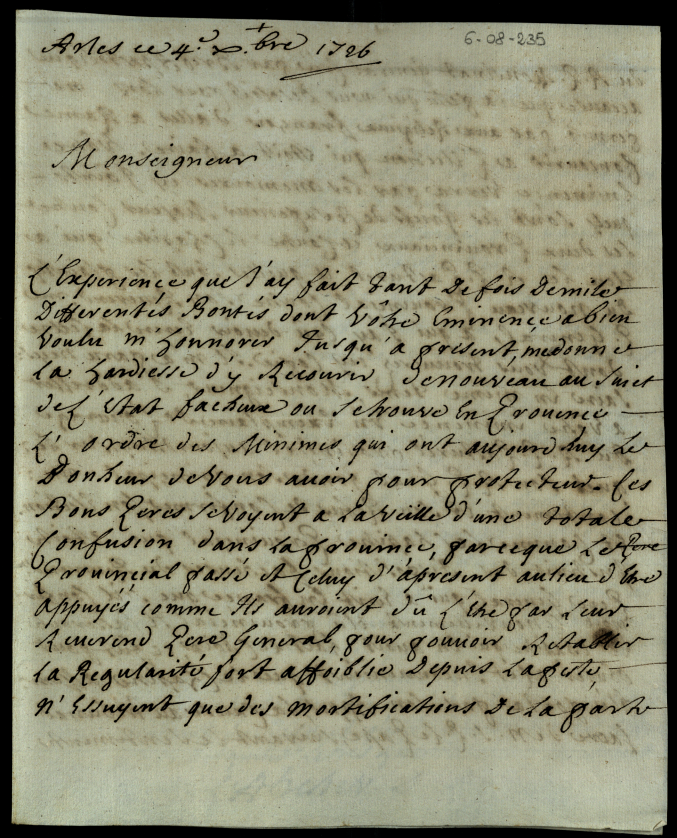 Arles ce 4.e x.bre 1726
6-08-235
Monseigneur
L'Experience que J'ay fait tant De fois Demile
Differentés Bontés dont Vôtre Eminence a bien
Voulu m'honnorer Jusqu'a present, me donne
La hardiesse d'y Recourir de nouveau au Suiet
de L'Etat facheux ou Se trouve En Provence
L'ordre des Minimes qui ont aujourd'huy Le
Bonheur de Vous avoir pour protecteur. Ces
Bons Peres se Voyent a La Veille d'une totale
Confusion dans La province, parceque Le Pere
Provincial passé et Celuy d'apresent au lieu d'Etre
appuyés comme Ils auroient dû L'Etre par Leur
Reverend Pere General, pour pouvoir Retablir
La Regularité fort affoiblie Depuis La peste
n'Essuyent que des mortifications De La part